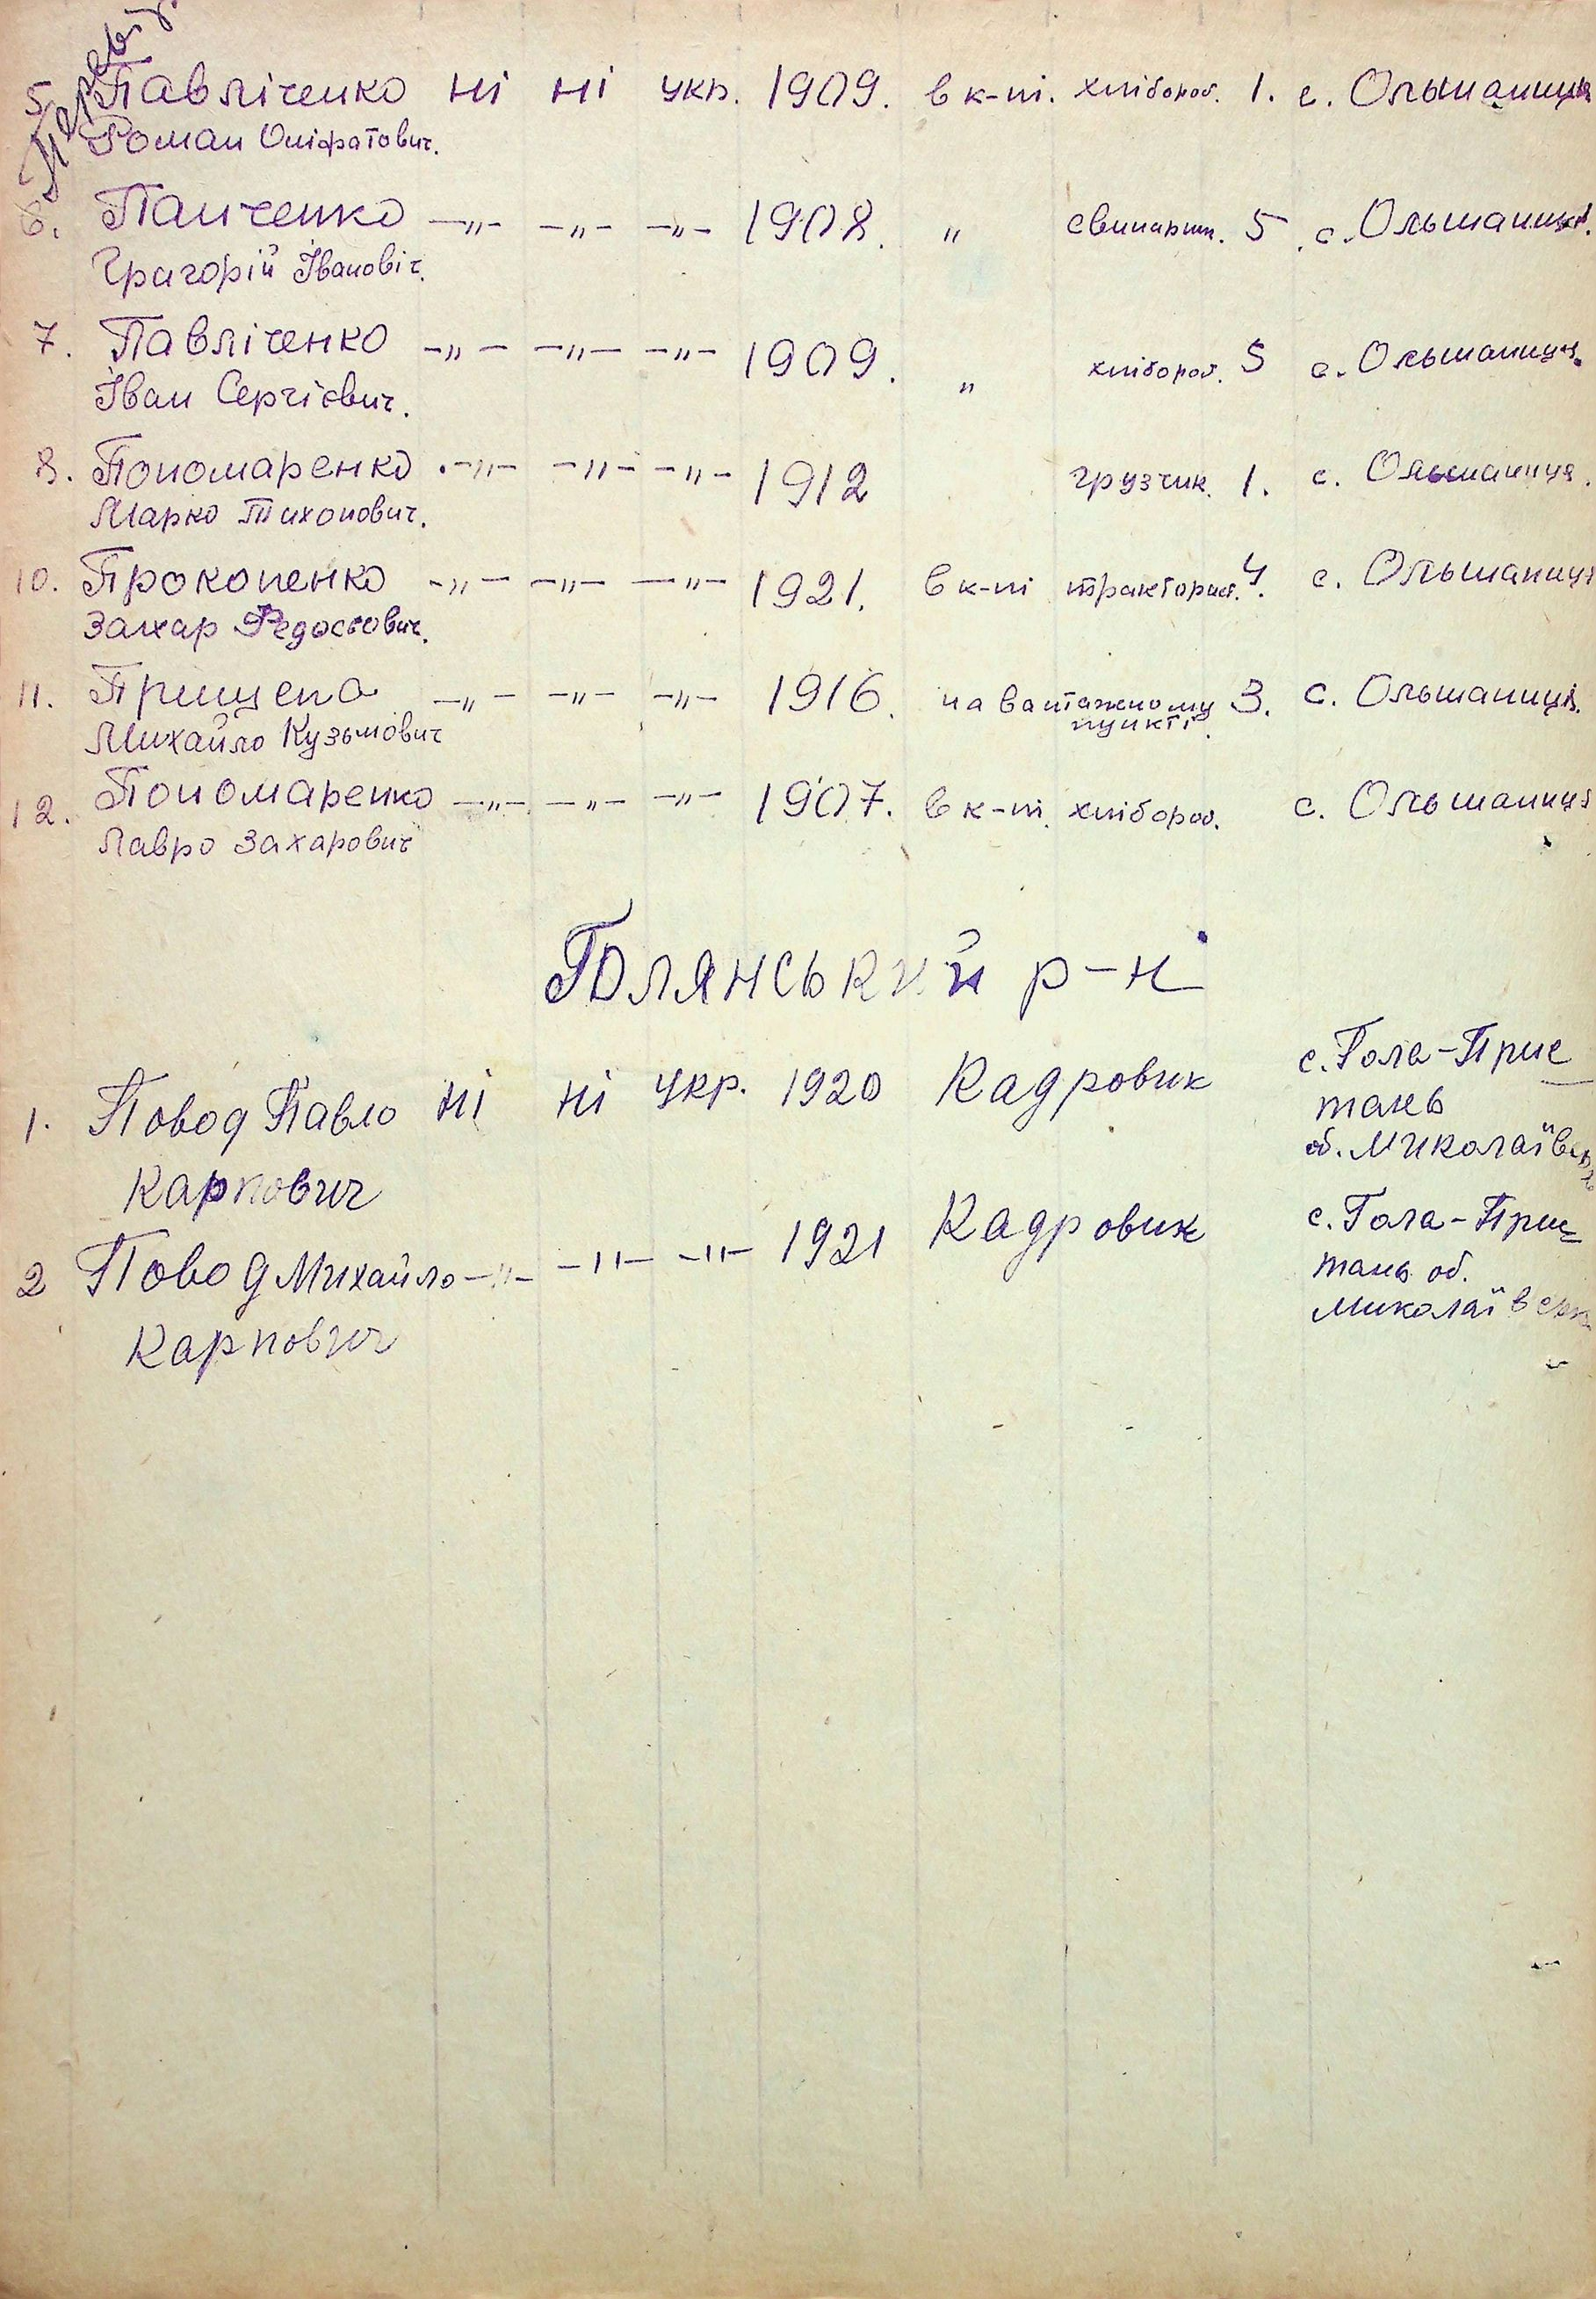 Перевір.
5. Павліченко ні ні укр. 1909. в к-пі. хлібороб. 1. с. Ольшаниця
Роман Оніфатович.
6. Панченко —„— —„— —„— 1908. „ свинарни. 5. с. Ольшаниця.
Грагорій Івановіч.
7. Павліченко —„— —„— —„— 1909. „ хлібороб. 5 с. Ольшаниця.
Іван Сергієвич.
8. Пономаренко —„— —„— —„— 1912 грузчик. 1. с. Ольшаниця.
Марко Тихонович.
10. Прокопенко —„— —„— —„— 1921. в к-пі тракторист. 4. с. Ольшаниця
Захар Федосєович.
11. Прищепа —„— —„— —„— 1916. на вантажному 3. с. Ольшаниця.
пункті.
Михайло Кузьмович
12. Пономаренко —„— —„— —„— 1907. в к-пі. хлібороб. с. Ольшаниця
Лавро Захарович
Полянський р-н
1. Повод Павло ні ні укр. 1920 Кадровик с. Гола-Прис
тань
об. Миколаївськ
Карпович
2 Повод Михайло —„— —„— —„— 1921 Кадровик с. Гола-Прис
тань об.
Миколаївськ
Карпович